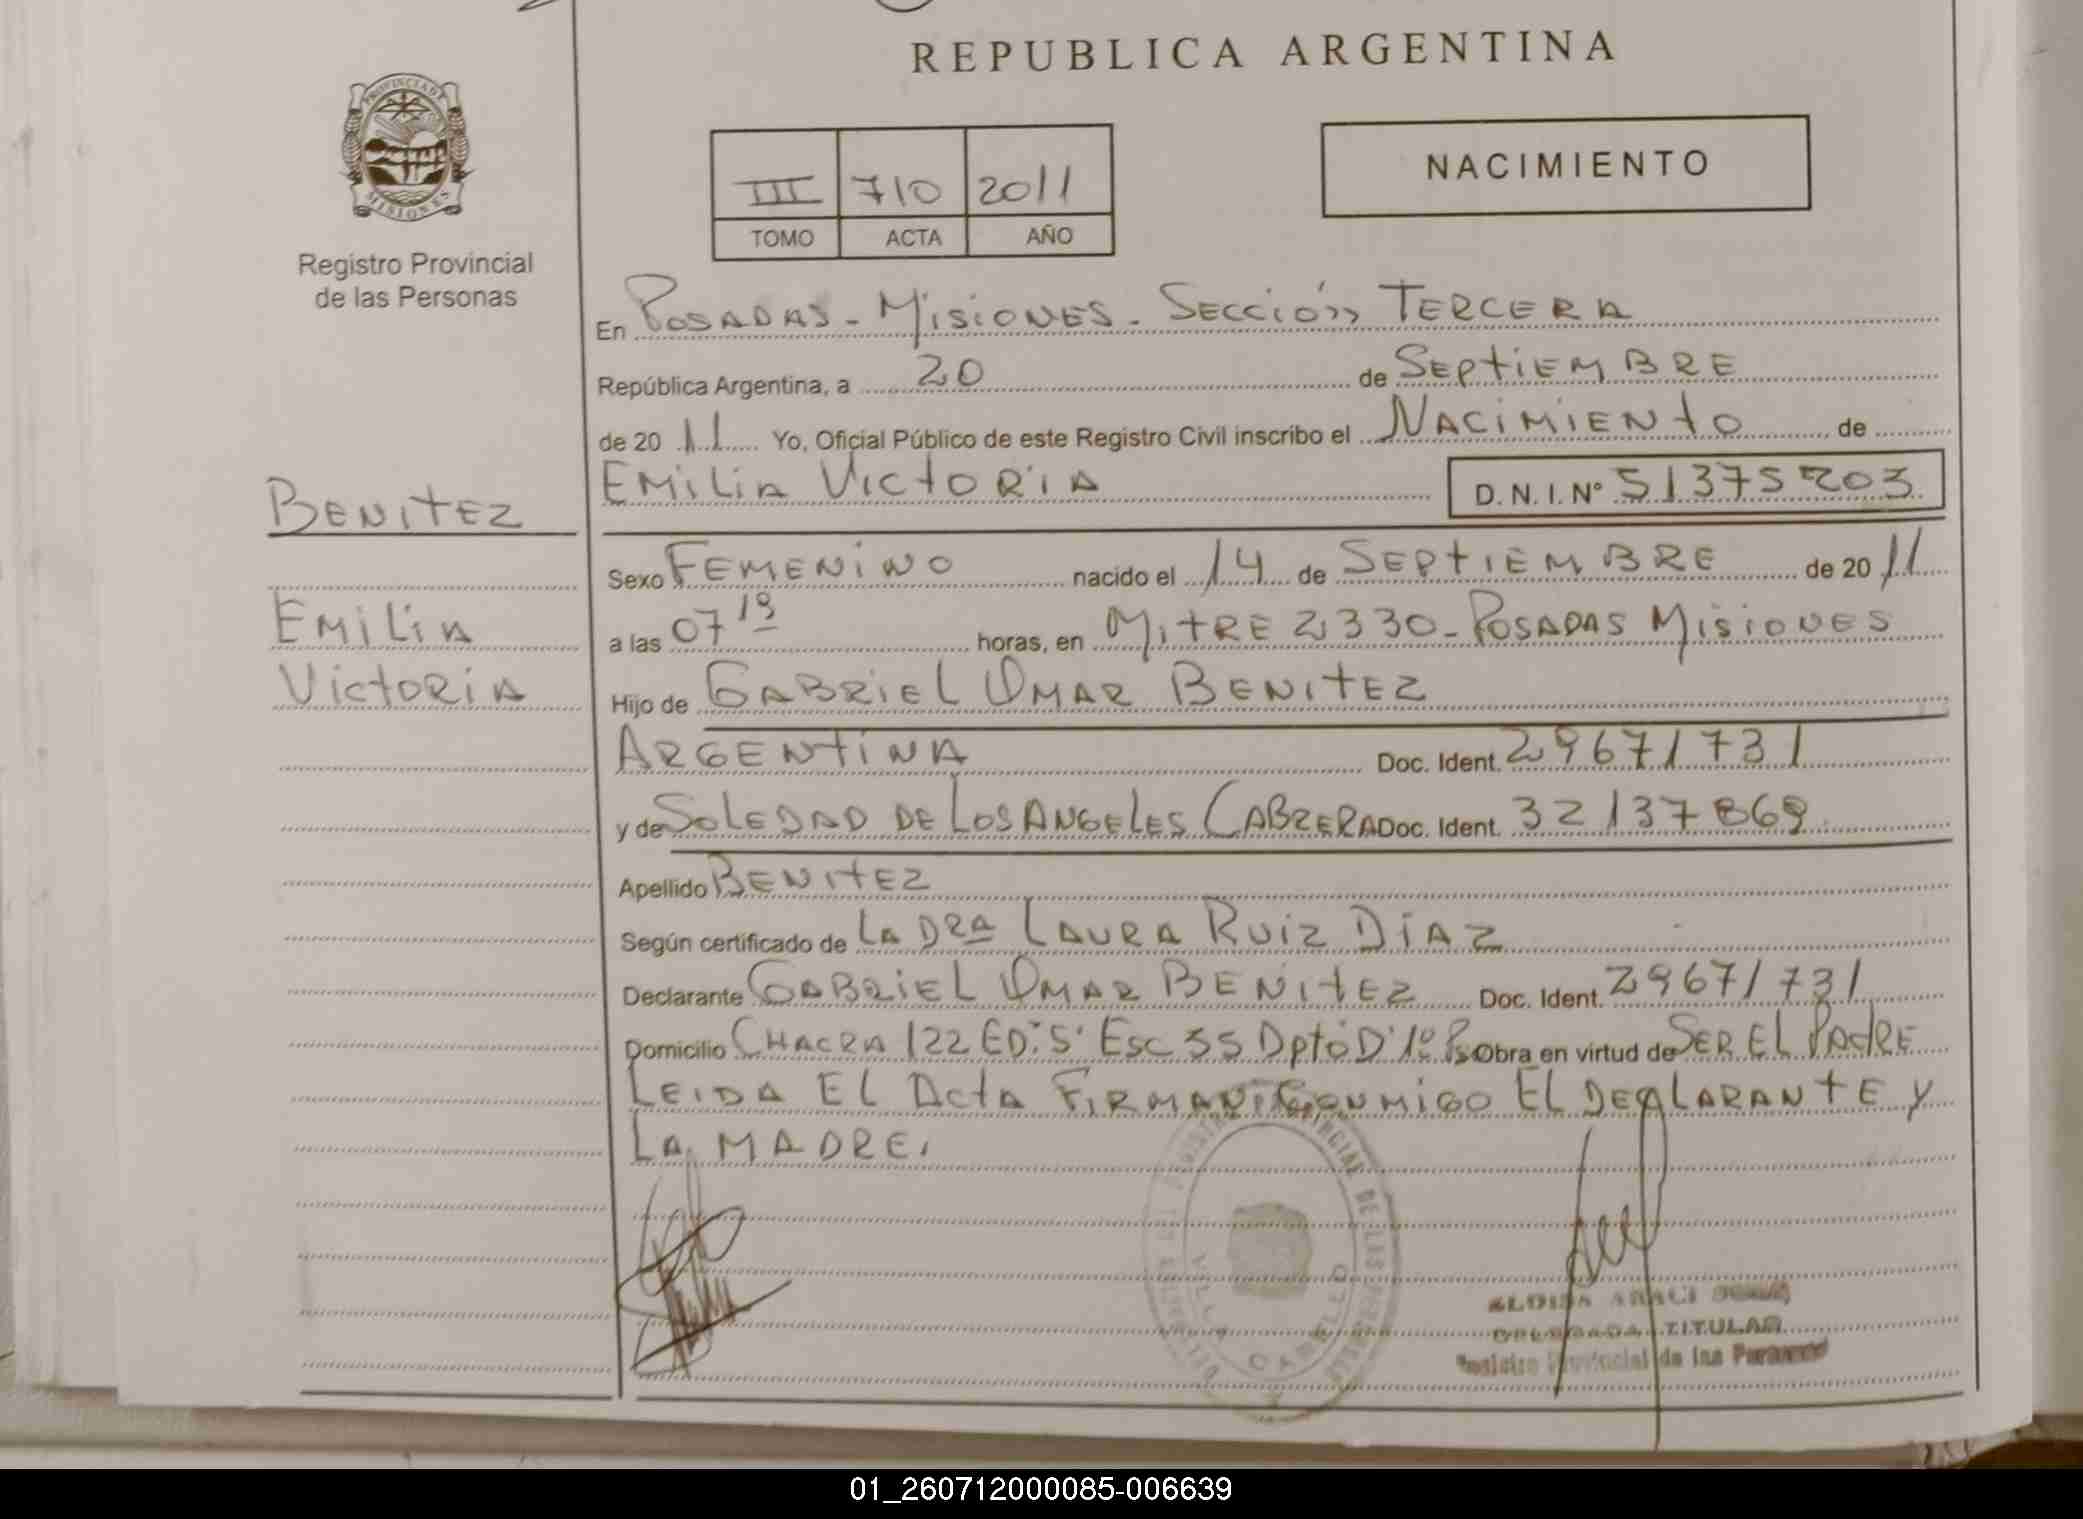 REPUBLICA ARGENTINA
PROVINCIA DE
MISIONES
Registro Provincial
de las Personas
III 710 2011
TOMO ACTA AÑO
NACIMIENTO
En POSADAS - MISIONES - SECCIÓN TERCERA
República Argentina, a 20 de SEPTIEMBRE
de 20 11 Yo, Oficial Público de este Registro Civil inscribo el NACIMIENTO de
EMILIA VICTORIA D. N. I. Nº 51375203
BENITEZ
EMILIA
VICTORIA
Sexo FEMENINO nacido el 14 de SEPTIEMBRE de 20 11
a las 07 19 horas, en MITRE 2330 - POSADAS MISIONES
Hijo de GABRIEL OMAR BENITEZ
ARGENTINA Doc. Ident. 29671731
y de SOLEDAD DE LOS ANGELES CABRERA Doc. Ident. 32137869
Apellido BENITEZ
Según certificado de LA DRA LAURA RUIZ DIAZ
Declarante GABRIEL OMAR BENITEZ Doc. Ident. 29671731
Domicilio CHACRA 122 EDi. 5' ESC 35 Dpto D' 1º Ps Obra en virtud de SER EL PADRE
LEIDA EL ACTA FIRMAN CONMIGO EL DECLARANTE Y
LA MADRE.
VILLA CABELLO
ARACI
TITULAR
Registro Provincial de las Personas
01_260712000085-006639